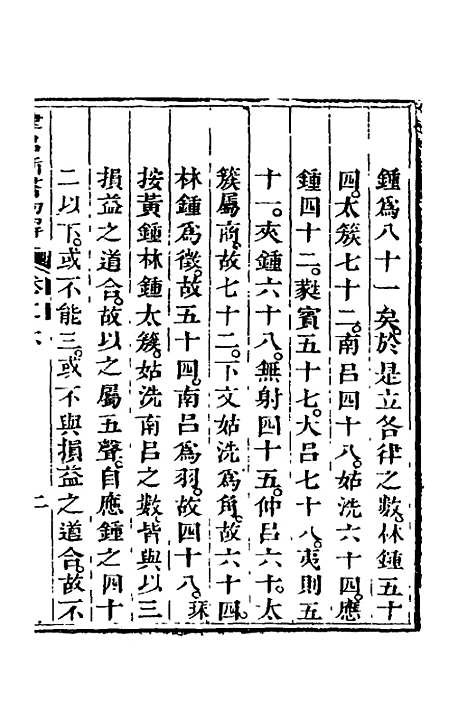 鍾爲八十一矣。於是立各律之數。林鍾五十
四。太簇七十二。南呂四十八。姑洗六十四。應
鍾四十二。蕤賓五十七。大呂七十八。夷則五
十一。夾鍾六十八。無射四十五。仲呂六十。太
簇屬商。故七十二。下文姑洗爲角。故六十四。
林鍾爲徵。故五十四。南呂爲羽。故四十八。琭
按黃鍾林鍾太簇。姑洗南呂之數皆與以三
損益之道合。故以之屬五聲。自應鍾之四十
二以下。或不能三。或不與損益之道合。故不
二